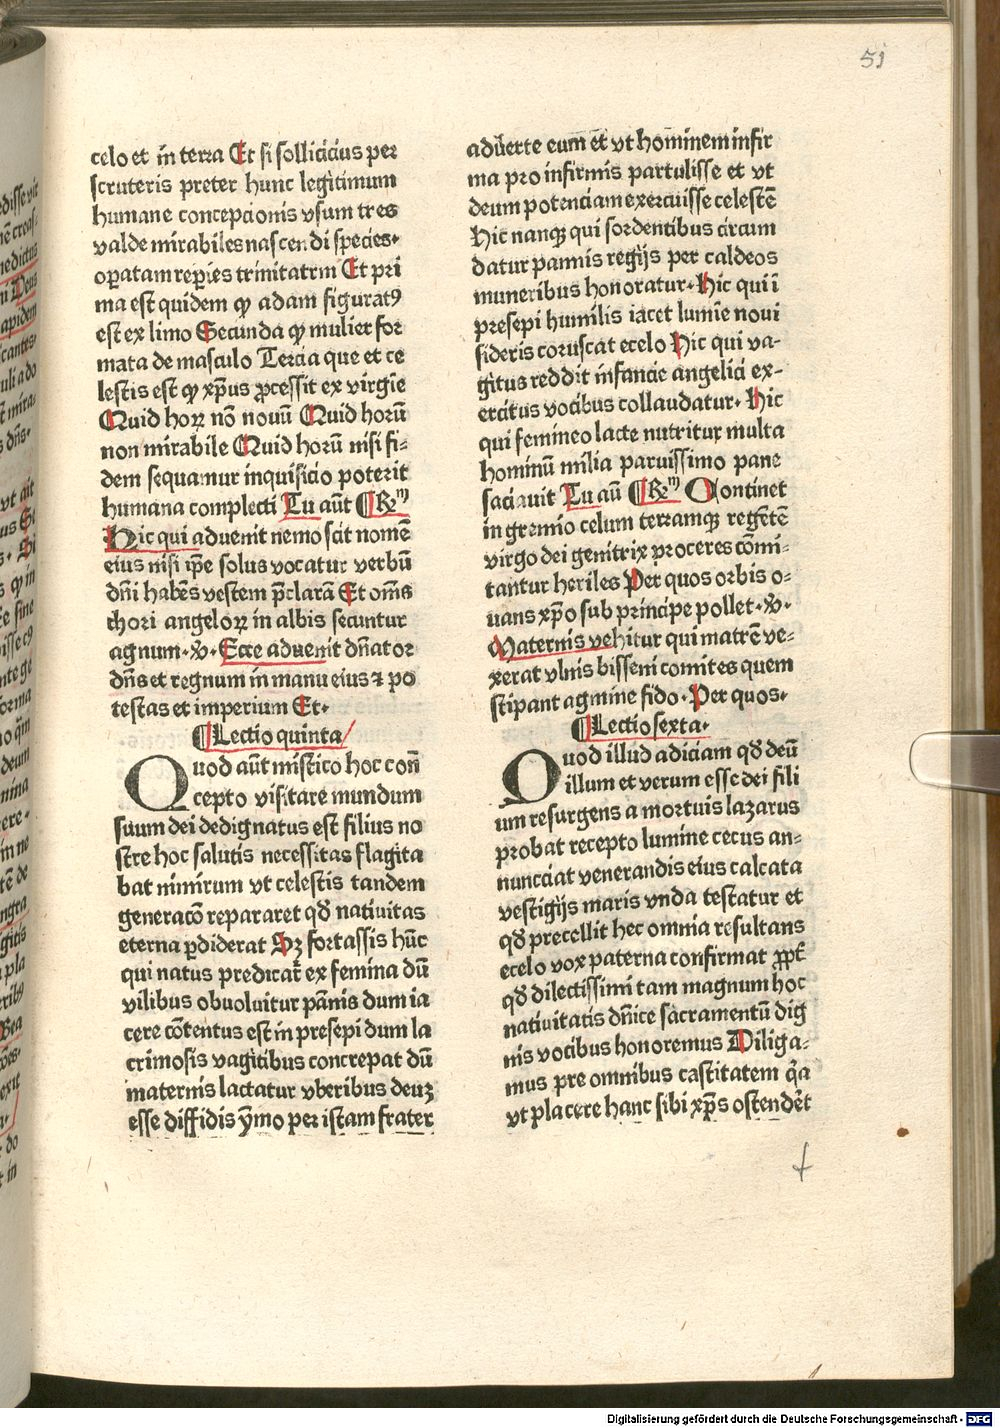 51
celo et in terra Et si sollicicius per
scruteris preter hunc legitimum
humane concepcionis vsum tres
valde mirabiles nascendi species·
opatam repies trinitatem Et pri
ma est quidem qꝫ adam figuratꝰ
est ex limo Secunda qꝫ mulier for
mata de masculo Tercia que et ce
lestis est qꝫ xp̄us ꝓcessit ex virgīe
Quid hoꝝ nō nouū Quid horū
non mirabile Quid horū nisi fi-
dem sequamur inquisicio poterit
humana complecti Tu aūt ¶Rm̄
Hic qui aduenit nemo scit nomē
eius nisi ip̄e solus vocatur verbū
dn̄i habēs vestem p̄clarā Et om̄s
chori angeloꝝ in albis secuntur
agnum·v̄· Ecce aduenit dn̄ator
dn̄s et regnum in manu eius ⁊ po
testas et imperium Et·
¶Lectio quinta
Quod aūt mistico hoc con̄
cepto visitare mundum
suum dei dedignatus est filius no
stre hoc salutis necessitas flagita
bat nimirum vt celestis tandem
generacō repararet qd̄ natiuitas
eterna ꝑdiderat Sꝫ fortassis hūc
qui natus predicat̄ ex femina dū
vilibus obuoluitur pānis dum ia
cere cōtentus est in presepi dum la
crimosis vagitibus concrepat dū
maternis lactatur vberibus deuꝫ
esse diffidis ȳmo per istam frater
adūerte eum ēt vt hominem infir
ma pro infirmis partulisse et vt
deum potenciam exercuisse celestē
Hic nanqꝫ qui sordentibus circum
datur pannis regijs per caldeos
muneribus honoratur·Hic qui ī
presepi humilis iacet lumīe noui
sideris coruscat ecelo Hic qui va-
gitus reddit infancie angelici ex-
ercitus vocibus collaudatur· Hic
qui femineo lacte nutritur multa
hominū milia paruissimo pane
saciauit Tu aū ¶Rm̄ Continet
in gremio celum terramqꝫ regētē
virgo dei genitrix proceres cōmi-
tantur heriles Per quos orbis o-
uans xp̄o sub principe pollet·v̄·
Maternis vehitur qui matrē ve-
xerat vlnis bisseni comites quem
stipant agmine fido·Per quos·
¶Lectio sexta·
Quod illud adiciam qd̄ deū
illum et verum esse dei fili
um resurgens a mortuis lazarus
probat recepto lumine cecus an-
nunciat venerandis eius calcata
vestigijs maris vnda testatur et
qd̄ precellit hec omnia resultans
ecelo vox paterna confirmat ꝓpt̄
qd̄ dilectissimi tam magnum hoc
natiuitatis dn̄ice sacramentū dig
nis vocibus honoremus Diliga-
mus pre omnibus castitatem q̄a
vt placere hanc sibi xp̄s ostendēt
f
Digitalisierung gefördert durch die Deutsche Forschungsgemeinschaft · DFG